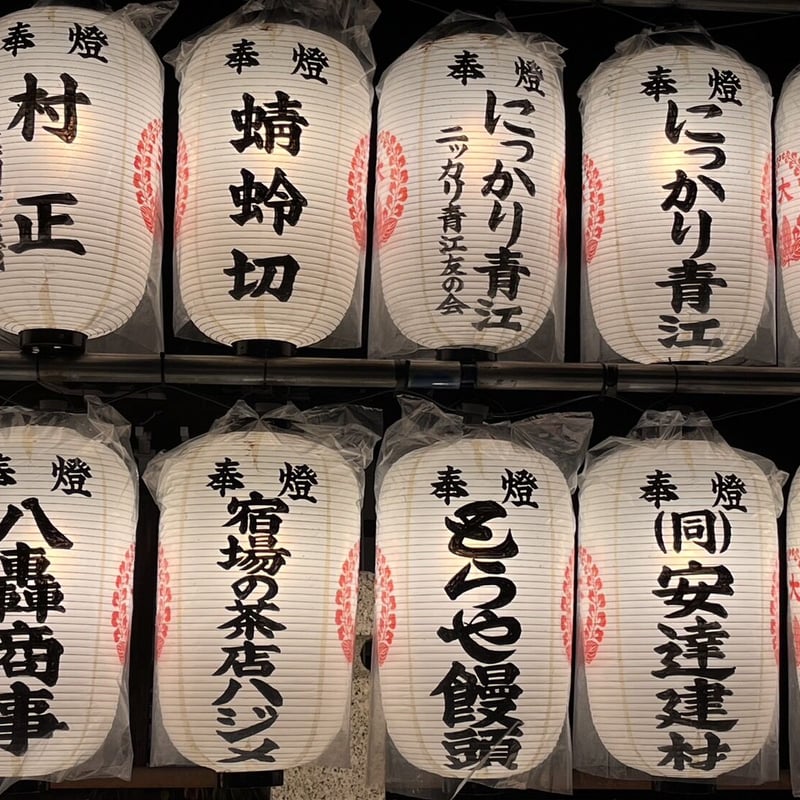 奉燈
村正
奉燈
蜻蛉切
奉燈
にっかり青江
ニッカリ青江友の会
奉燈
にっかり青江
大
奉燈
八轟商事
奉燈
宿場の茶店ハジメ
奉燈
とらや饅頭
奉燈
(同)安達建材
大